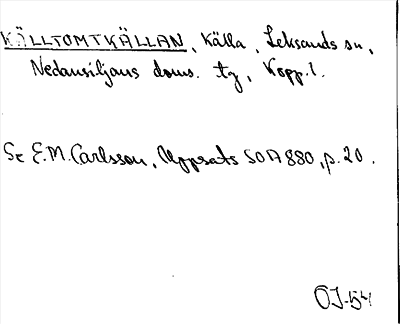 KÄLLTOMTKÄLLAN, källa, Leksands sn,
Nedansiljans doms. tg, Kopp. l.
Se E.M. Carlsson, Uppsats SOA 880, p. 20.
ÖJ-54